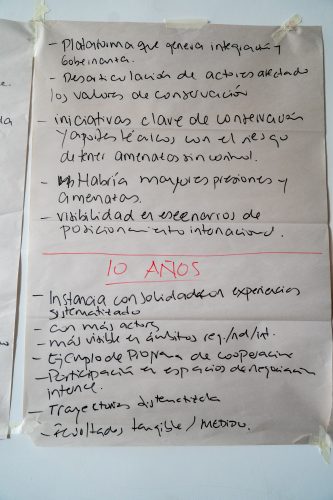 - Plataforma que genera integración y
Gobernanza.
- Desarticulación de actores afectado
los valores de conservación
- iniciativas clave de conservación
y aportes técnicos con el riesgo
de tener amenazas sin control.
- Habría mayores presiones y
amenazas.
- Visibilidad en escenarios de
posicionamiento internacional.
10 AÑOS
- Instancia consolidada con experiencias
sistematizado
- con más actores
- más visible en ámbitos reg./nal/int.
- Ejemplo de Programa de cooperación
- Participación en espacios de negociación
- Trayectoria sistematizada
- Resultados tangible / MEDIDO.